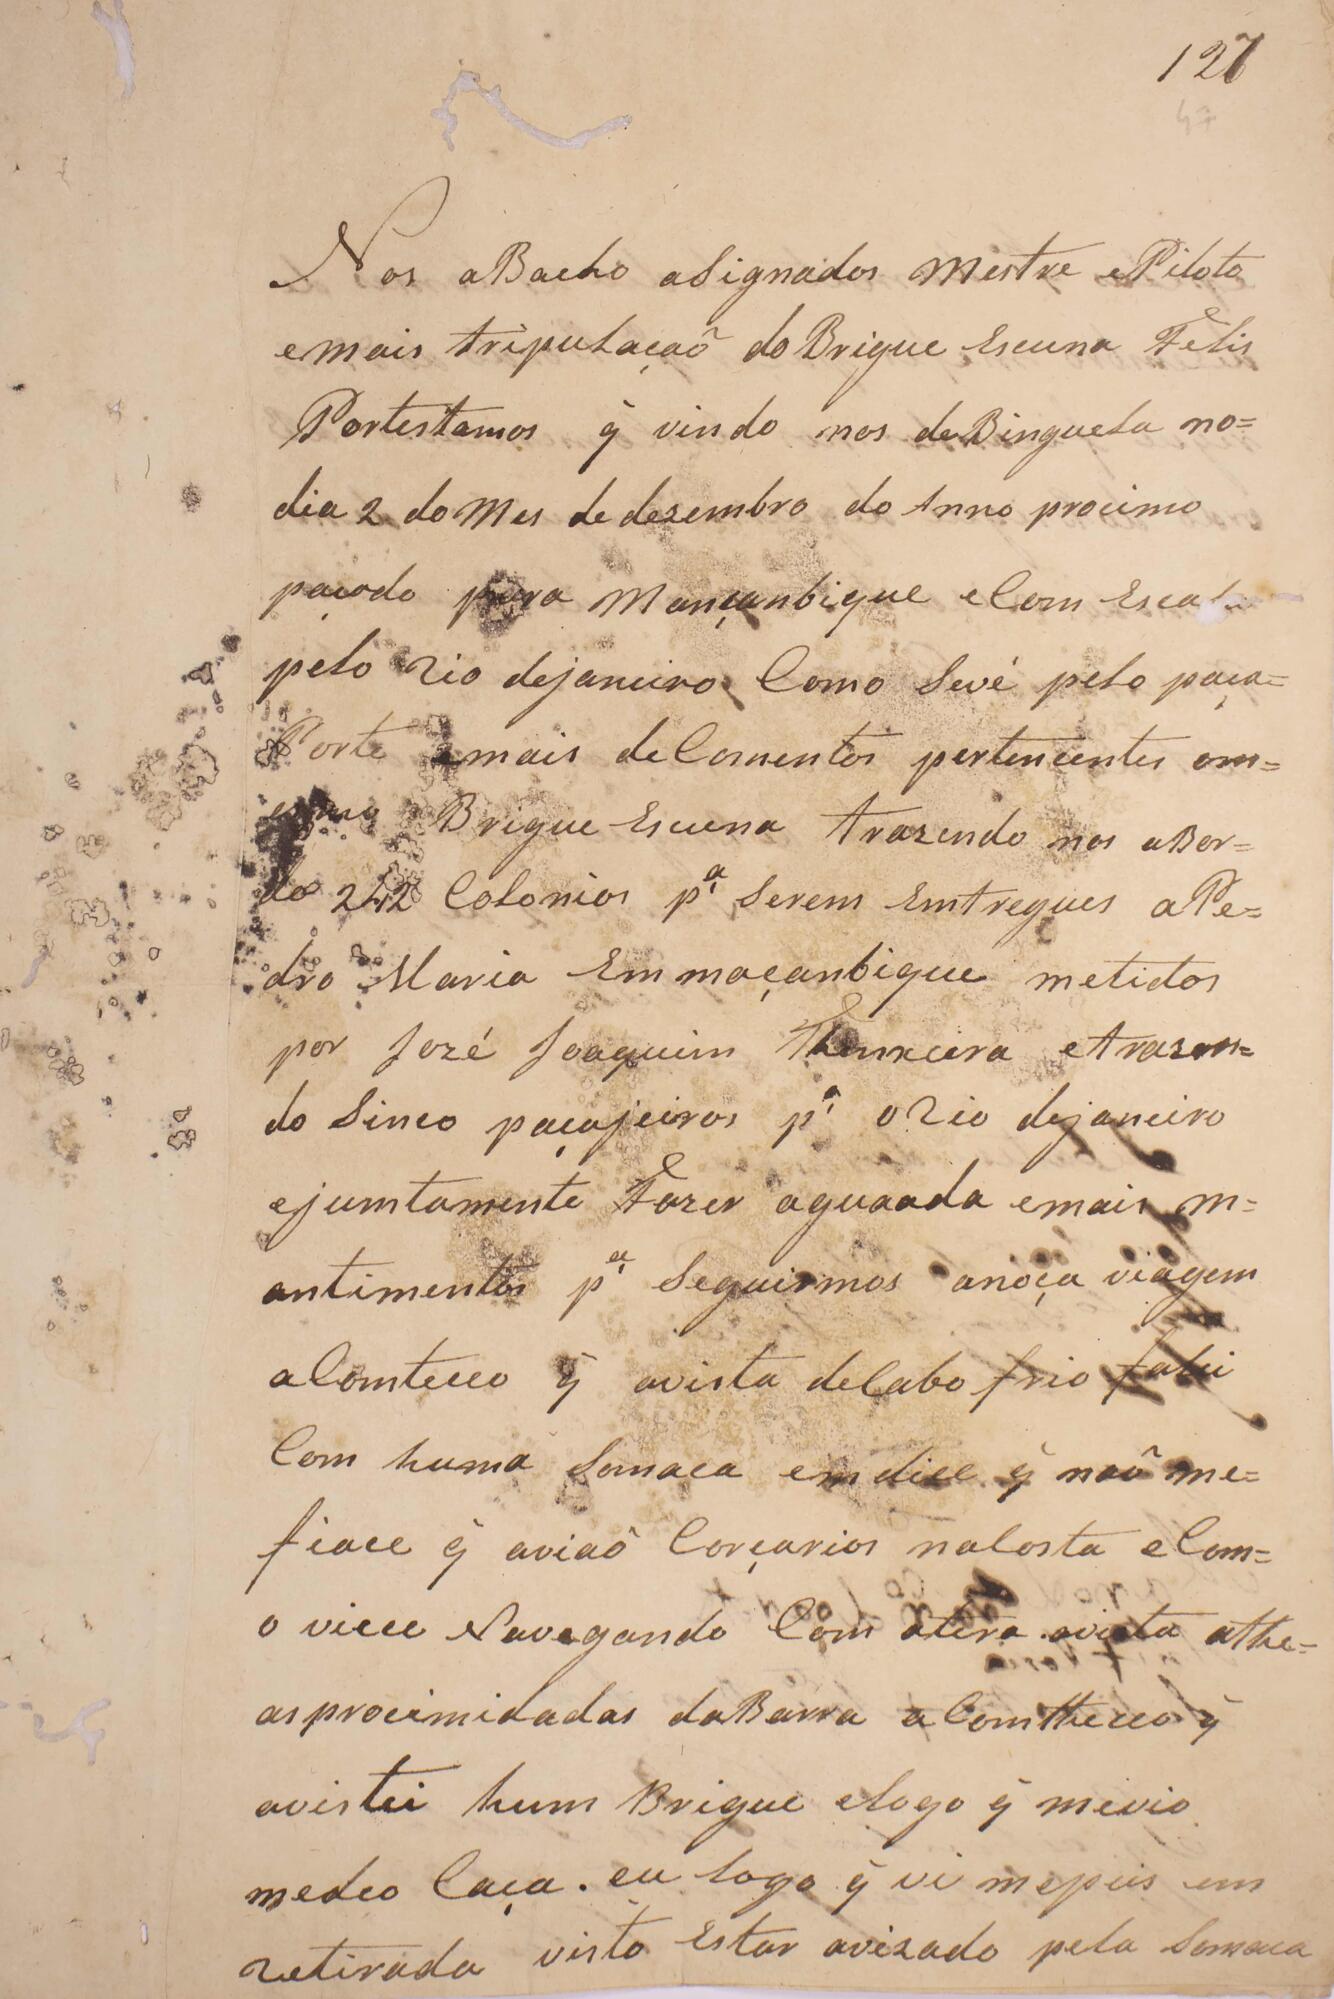 127
47
Nos aBacho aSignados Mestre ePiloto
emais tripulaçaõ do Brigue Escuna Felis
Portestamos q̃ vindo nos deBinguela no=
dia 2 do Mes de dezembro do Anno procimo
paçado para Mançanbique eCom Escala
pelo Rio dejaneiro Como Sevê pelo paça=
Porte emais deComentos pertencentes om=
esmo Brigue Escuna trazendo nos aBor=
do 242 Colonios pª Serem Emtregues aPe=
dro Maria Em maçanbique metidos
por Jozé Joaquim Themxeira etrazen=
do Sinco paçajeiros pª oRio dejaneiro
ejumtamente Fazer aguaada emais m=
antimentos pª Seguirmos anoça viagem
aComteceo q̃ avista deCabo frio falei
Com huma Somaca emdice q̃ naõ me=
fiace q̃ aviaõ Corçarios naCosta eCom=
o viece Navegando Com atera avista athe=
asprocimidadas daBarra aComtheceo q̃
avistei hum Brigue elogo q̃ mevio
medeo Caça. eu logo q̃ vi mepuis em
retirada visto Estar avizado pela Somaca